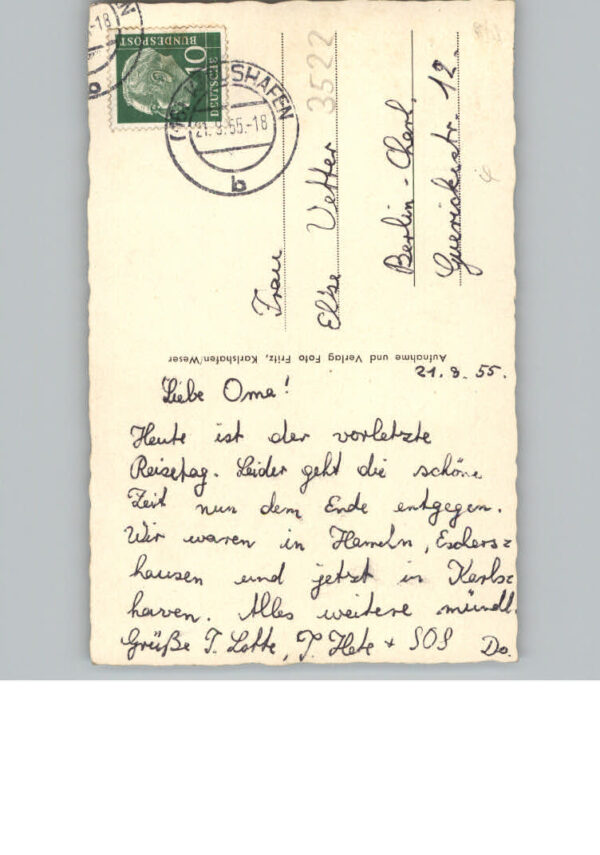 DEUTSCHE
BUNDESPOST
10
KARLSHAFEN
21.8.55.-18
b
Frau
Else Vetter
3522
Berlin-Charl.
Guerickestr. 12.
Aufnahme und Verlag Foto Fritz, Karlshafen/Weser
21.8.55.
Liebe Oma!
Heute ist der vorletzte
Reisetag. Leider geht die schöne
Zeit nun dem Ende entgegen.
Wir waren in Hameln, Eschers=
hausen und jetzt in Karls=
haven. Alles weitere mündl.
Grüße T. Lotte, T. Hete + SOS Do.